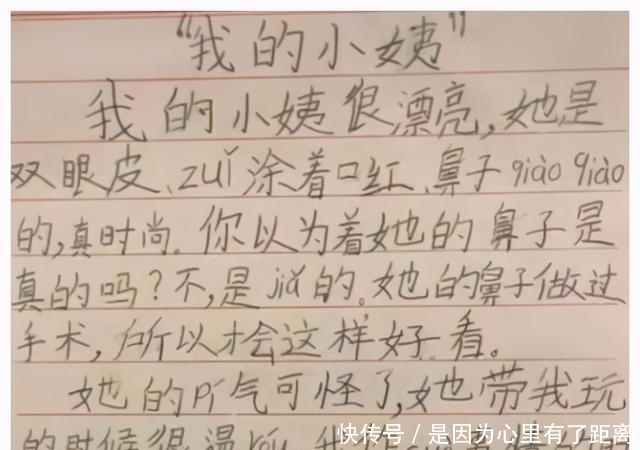 “我的小姨”
我的小姨很漂亮,她是
双眼皮、zuǐ涂着口红、鼻子qiào qiào
的,真时尚。你以为着她的鼻子是
真的吗?不,是jiǎ的。她的鼻子做过
手术,所以才会这样好看。
她的pí气可怪了,她带我玩
的时候很温róu,我
快传号/是因为心里有了距离